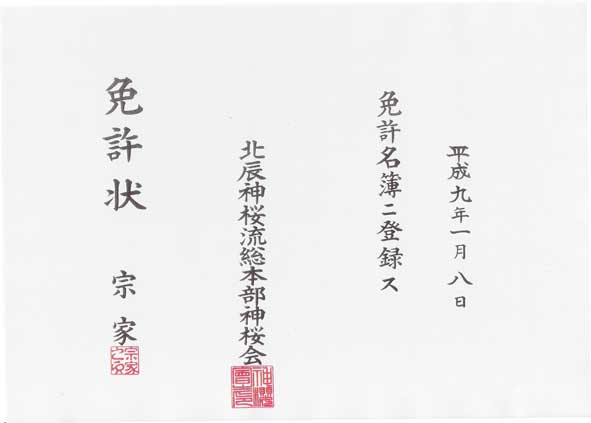 平成九年一月八日
免許名簿ニ登録ス
北辰神桜流総本部神桜会
神櫻會印
免許状 宗家
宗家之印